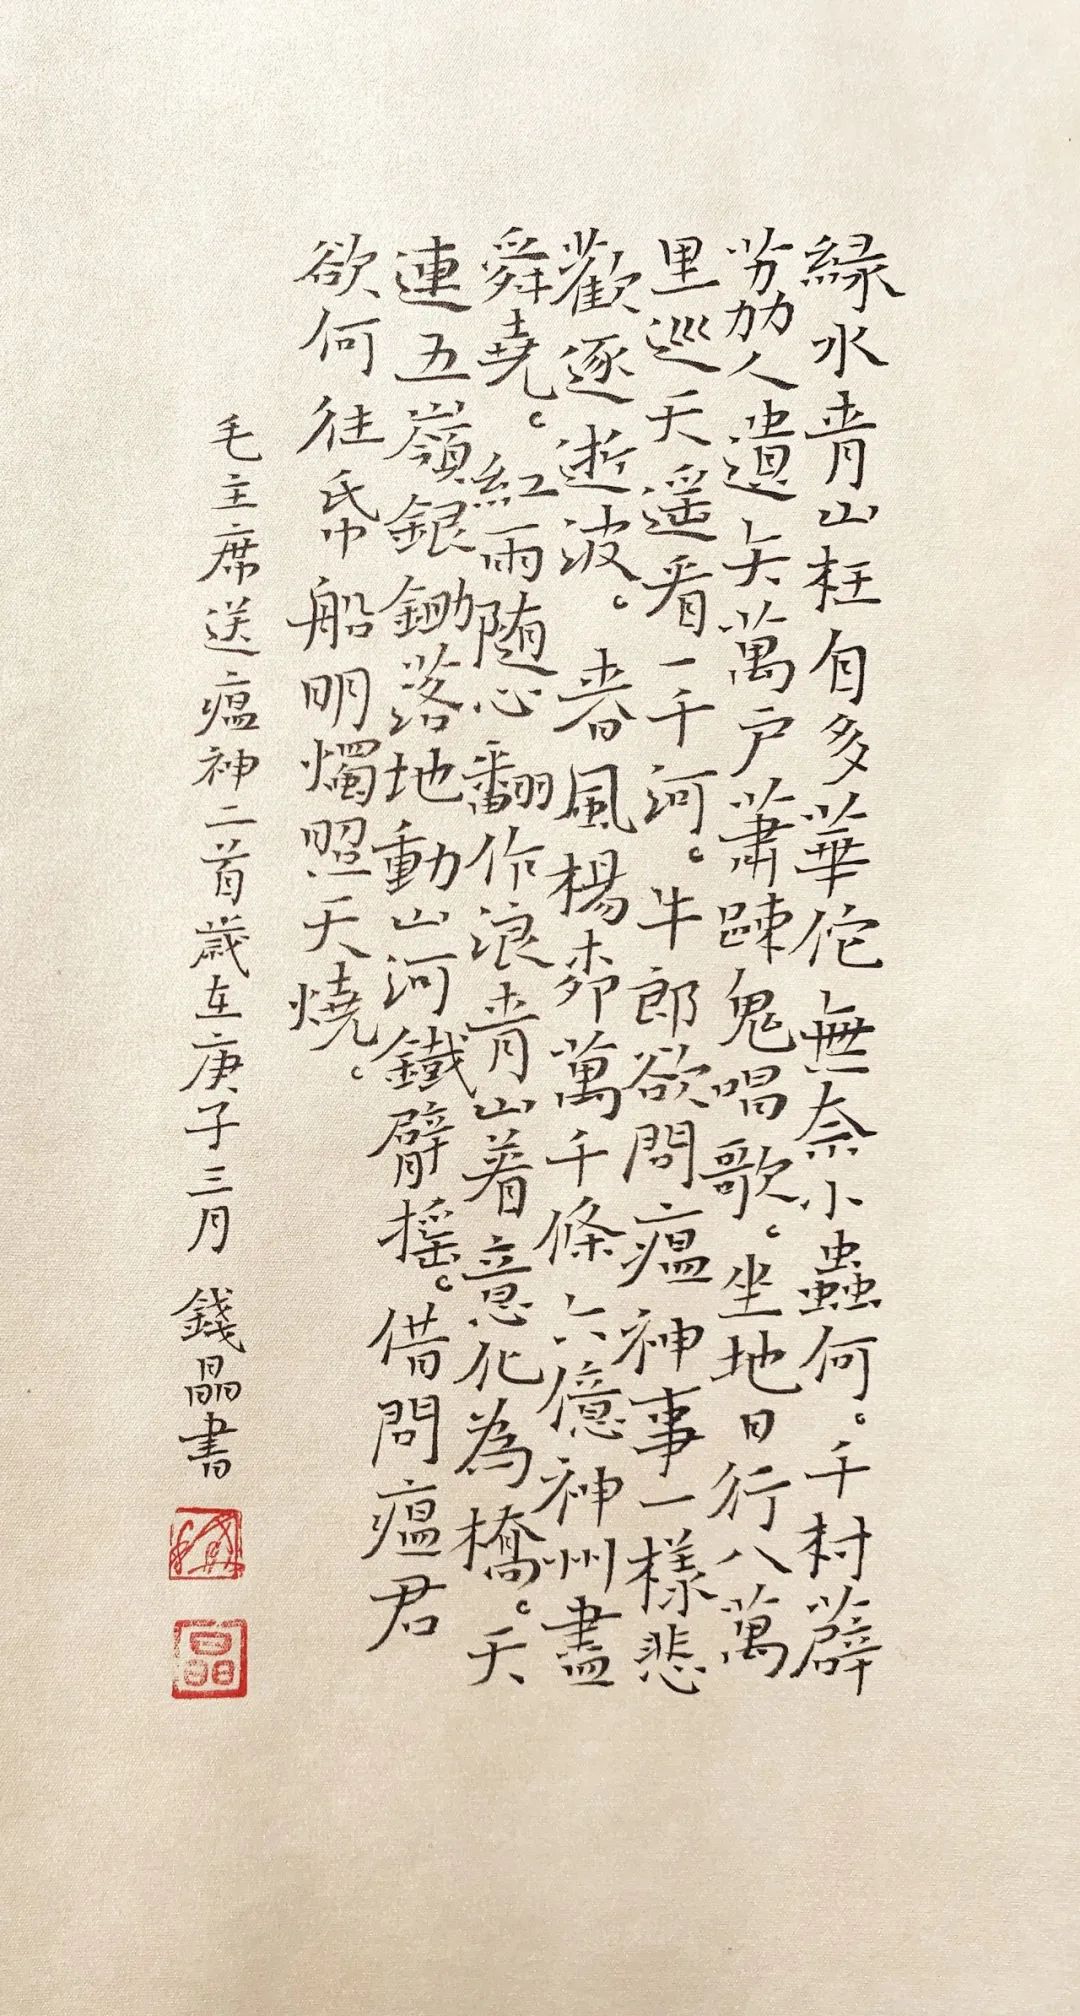 緑水青山枉自多華佗無奈小蟲何。千村薜
荔人遺矢萬户蕭踈鬼唱歌。坐地日行八萬
里巡天遥看一千河。牛郎欲問瘟神事一樣悲
歡逐逝波。春風楊桺萬千條六億神州盡
舜堯。紅雨随心翻作浪青山着意化為橋。天
連五嶺銀鋤落地動山河鐵臂摇。借問瘟君
欲何往帋船明燭照天燒。
毛主席送瘟神二首歲在庚子三月 錢晶書
晶